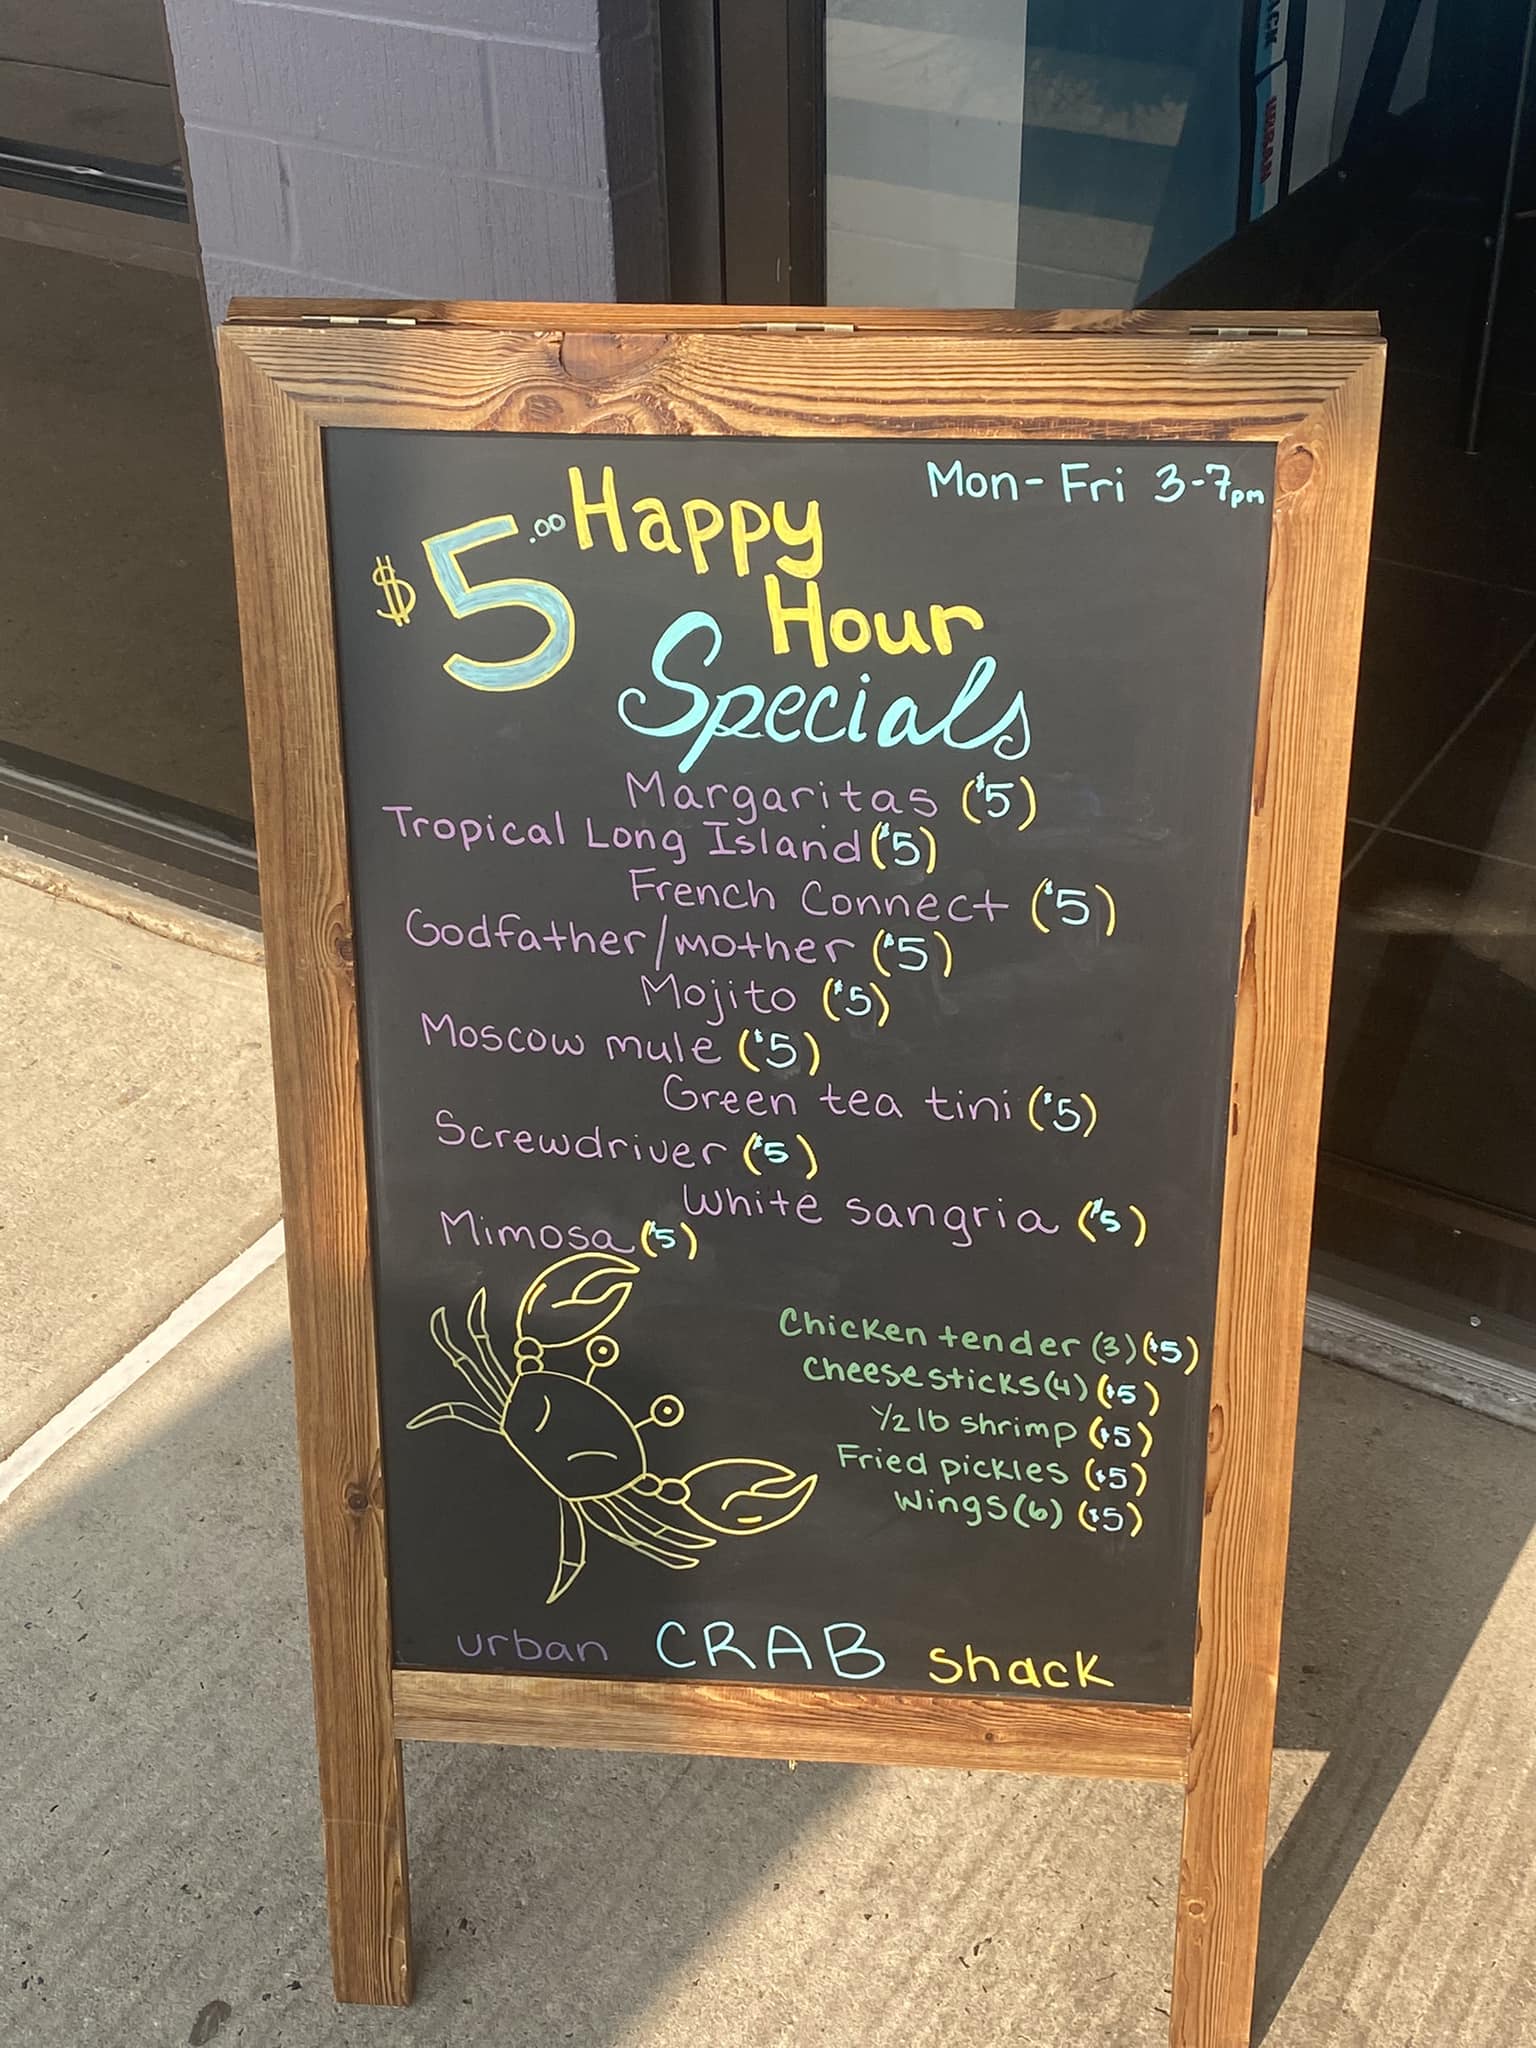 Mon-Fri 3-7pm
$5.00 Happy
Hour
Specials
Margaritas ($5)
Tropical Long Island ($5)
French Connect ($5)
Godfather/mother ($5)
Mojito ($5)
Moscow mule ($5)
Green tea tini ($5)
Screwdriver ($5)
White sangria ($5)
Mimosa ($5)
Chicken tender (3) ($5)
Cheese sticks (4) ($5)
1/2 lb shrimp ($5)
Fried pickles ($5)
Wings (6) ($5)
urban CRAB shack
URBAN